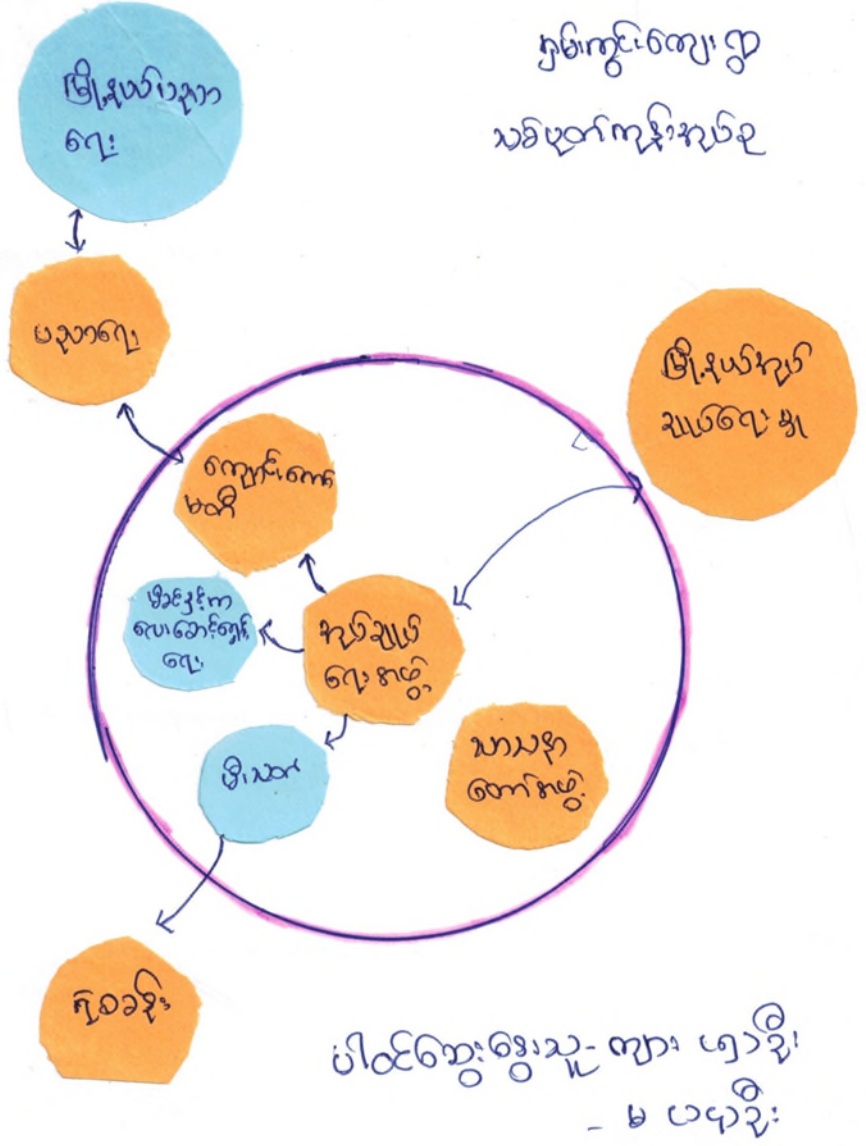 ရှမ်းကွင်းကျေးရွာ
သစ်ပုတ်ကုန်းအုပ်စု
မြို့နယ်ပညာ
ရေး
ပညာရေး
မြို့နယ်အုပ်
ချုပ်ရေးမှူး
ကျောင်းကော်
မတီ
မိခင်နှင့်က
လေးစောင့်ရှောက်
ရေး
အုပ်ချုပ်
ရေးအဖွဲ့
မီးသတ်
သာသနာ
တော်အဖွဲ့
ရဲစခန်း
ပါဝင်ဆွေးနွေးသူ - ကျား ဦး
- မ ဦး